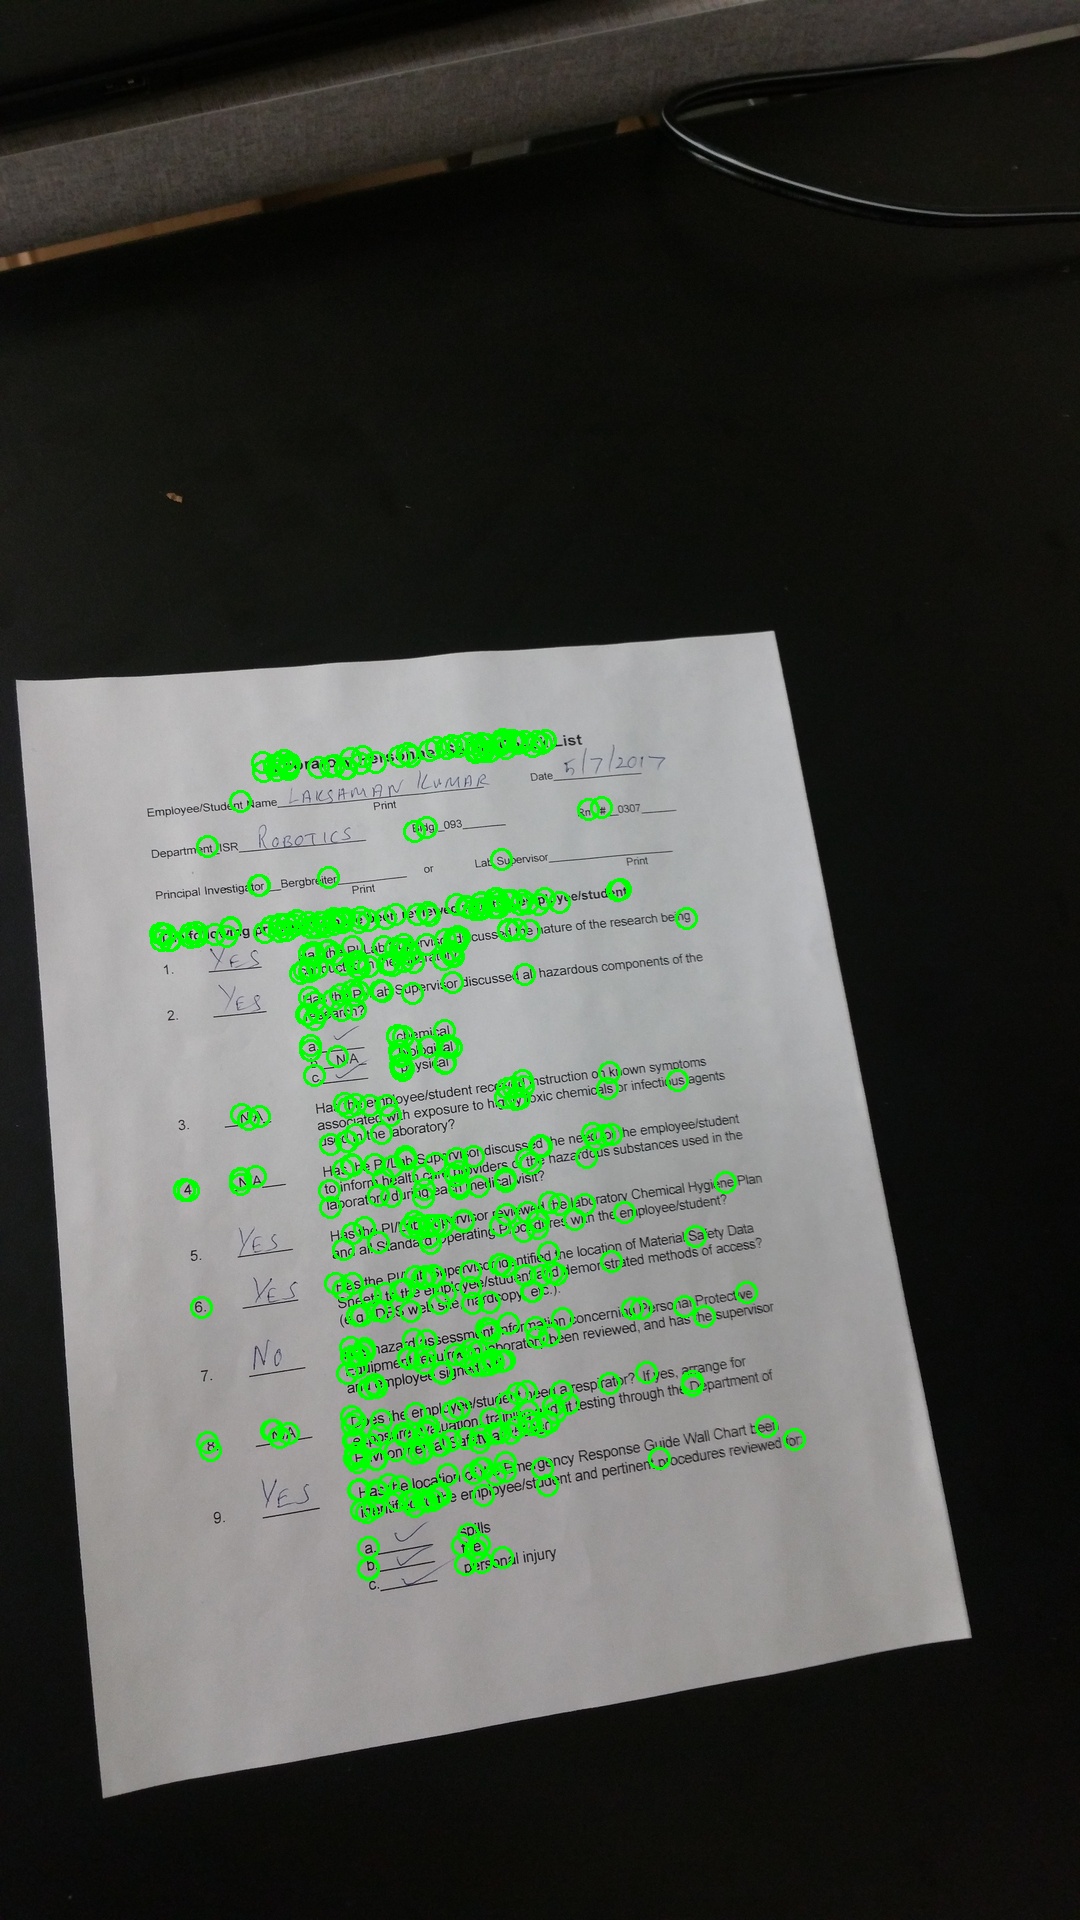 Laboratory Personnel List
Employee/Student Name LAKSAMAN KUMAR Date 5/7/2017
Print
Department ISR ROBOTICS Bldg 093 Rm # 0307
Principal Investigator Bergbreiter or Lab Supervisor
Print Print
The following been reviewed employee/student
1. YES Has the PI/Lab Supervisor discussed the nature of the research being
conducted in the laboratory?
2. YES Has the PI/Lab Supervisor discussed all hazardous components of the
research?
a. ✓ chemical
b. NA biological
c. ✓ physical
3. NA Has the employee/student received instruction on known symptoms
associated with exposure to highly toxic chemicals or infectious agents
used in the laboratory?
4. NA Has the PI/Lab Supervisor discussed the need for the employee/student
to inform health care providers of the hazardous substances used in the
laboratory during each medical visit?
5. YES Has the PI/Lab Supervisor reviewed the laboratory Chemical Hygiene Plan
and all Standard Operating Procedures with the employee/student?
6. YES Has the PI/Lab Supervisor identified the location of Material Safety Data
Sheets to the employee/student and demonstrated methods of access?
(e.g., DES web site, hardcopy, etc.).
7. NO hazard assessment information concerning Personal Protective
Equipment laboratory been reviewed, and has the supervisor
and employee signed
8. NA Does the employee/student need a respirator? If yes, arrange for
exposure evaluation, training and fit testing through the Department of
Environmental Safety
9. YES Has the location of the Emergency Response Guide Wall Chart been
identified to the employee/student and pertinent procedures reviewed for:
a. ✓ spills
b. ✓ fire
c. ✓ personal injury